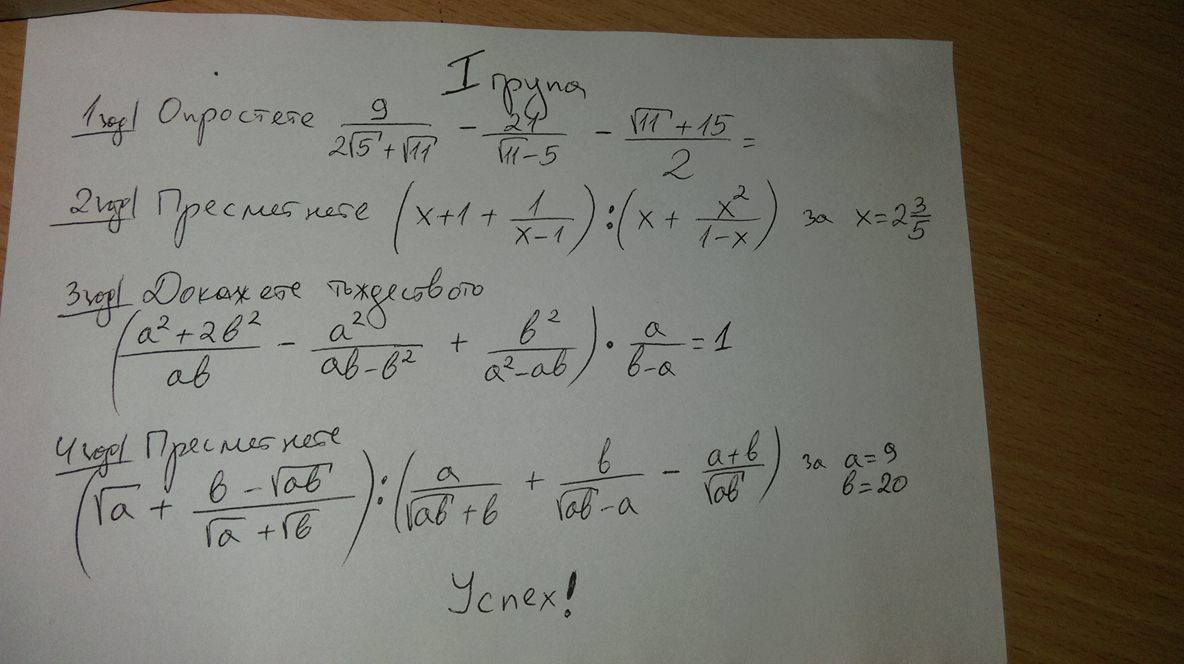 I група
1 зад/ Опростете 9/(2√5+√11) - 21/(√11-5) - (√11+15)/2 =
2 зад/ Пресметнете (x+1+1/(x-1)):(x+x²/(1-x)) за x=2 3/5
3 зад/ Докажете тъждеството
((a²+2b²)/ab - a²/(ab-b²) + b²/(a²-ab)) · a/(b-a) = 1
4 зад/ Пресметнете
(√a + (b-√ab)/(√a+√b)):(a/(√ab+b) + b/(√ab-a) - (a+b)/√ab) за a=9 b=20
Успех!